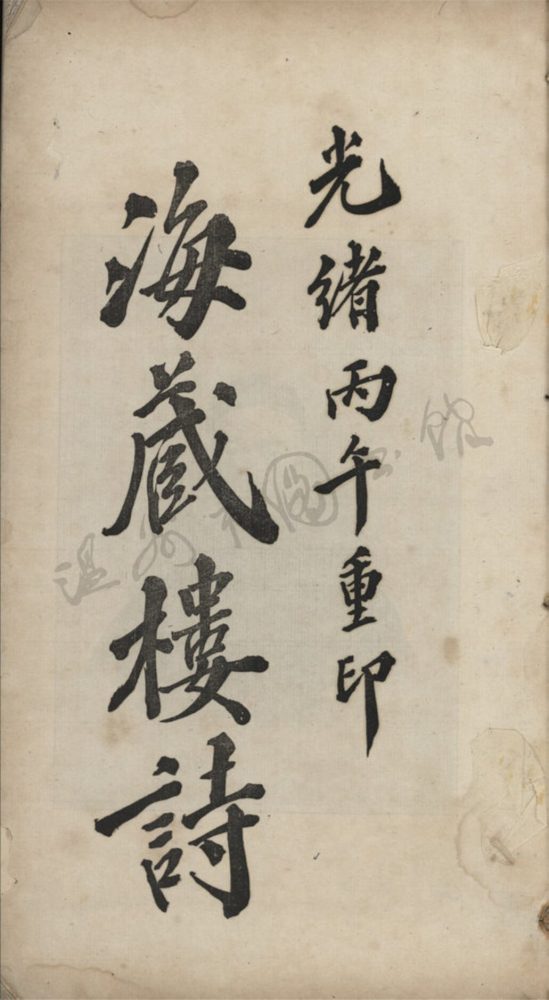 光緒丙午重印
海藏樓詩
温州市圖书館